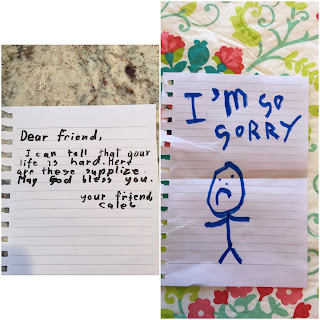 Dear Friend,
I can tall that your
life is hard. Here
are these supplize.
May God bless you.
your friend,
Caleb
I'M SO
SORRY